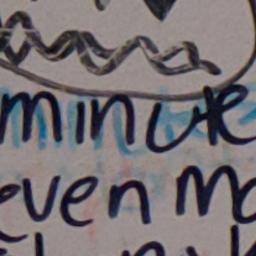 minute
even mo